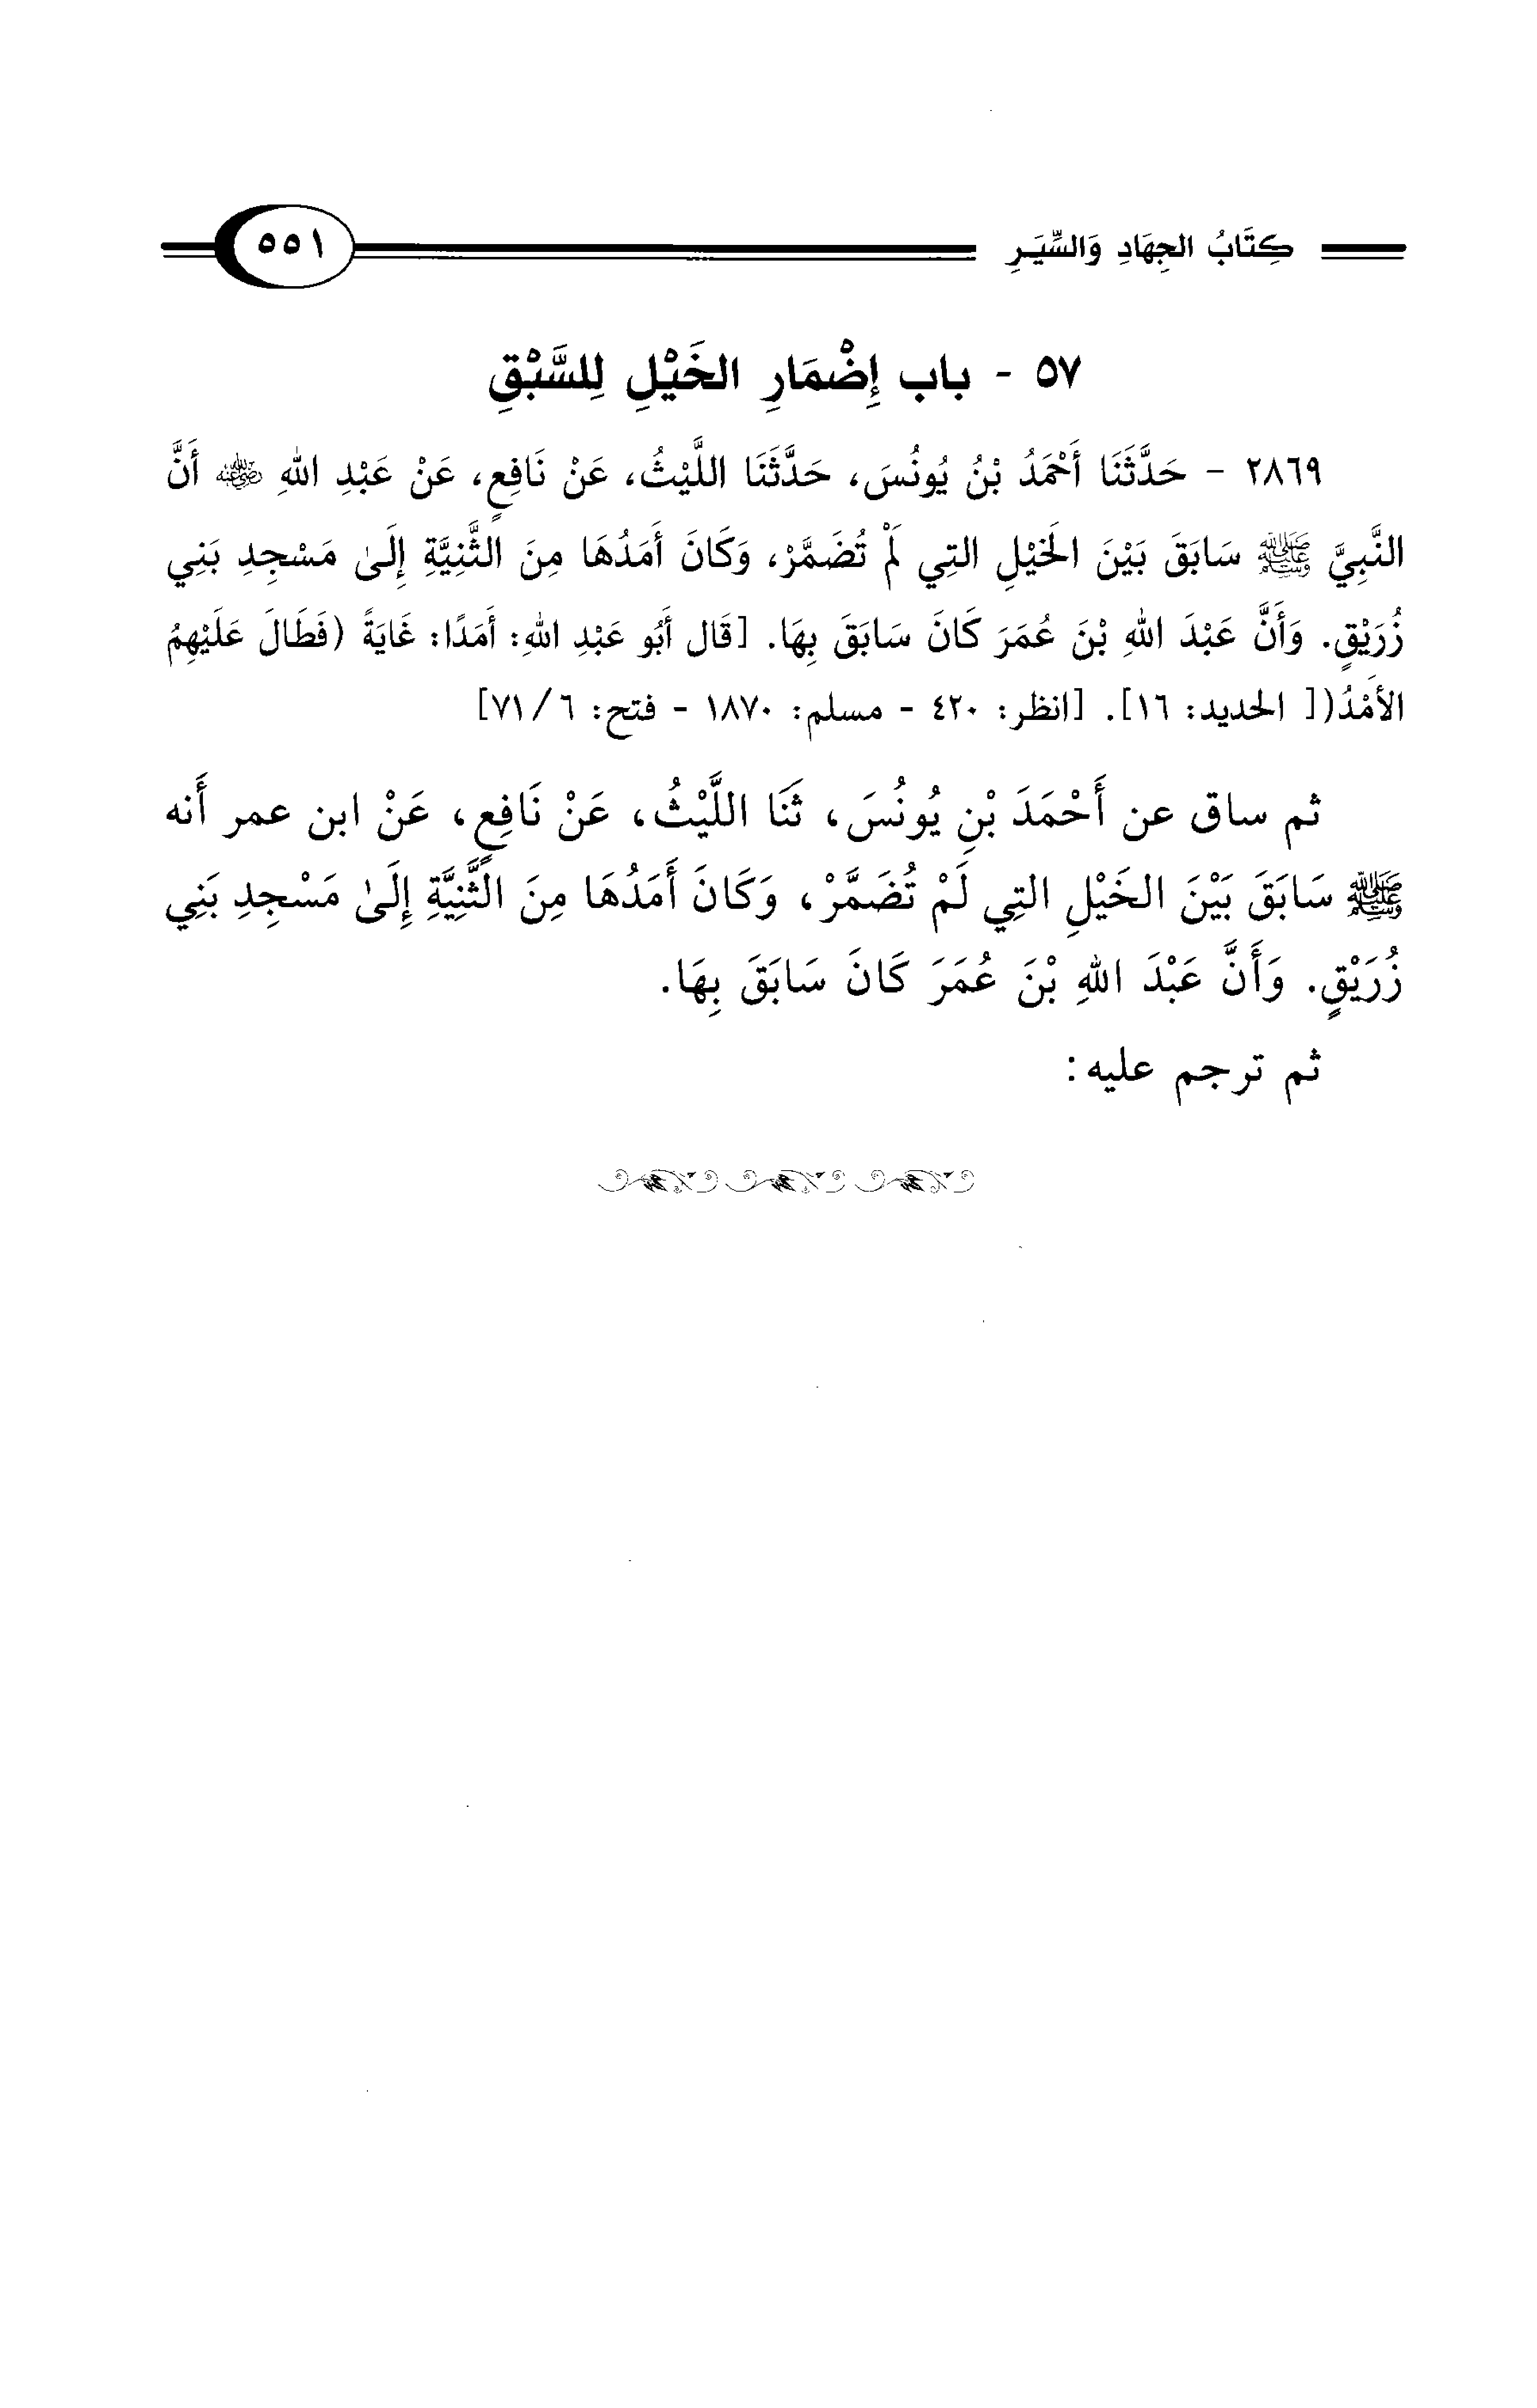 كِتَابُ الجِهَادِ وَالسِّيَرِ ٥٥١
٥٧ - باب إِضْمَارِ الخَيْلِ لِلسَّبْقِ
٢٨٦٩ - حَدَّثَنَا أَحْمَدُ بْنُ يُونُسَ، حَدَّثَنَا اللَّيْثُ، عَنْ نَافِعٍ، عَنْ عَبْدِ اللهِ رضي الله عنه أَنَّ
النَّبِيَّ ﷺ سَابَقَ بَيْنَ الخَيْلِ التِي لَمْ تُضَمَّرْ، وَكَانَ أَمَدُهَا مِنَ الثَّنِيَّةِ إِلَىٰ مَسْجِدِ بَنِي
زُرَيْقٍ. وَأَنَّ عَبْدَ اللهِ بْنَ عُمَرَ كَانَ سَابَقَ بِهَا. [قَال أَبُو عَبْدِ اللهِ: أَمَدًا: غَايَةً (فَطَالَ عَلَيْهِمُ
الأَمْدُ)[ الحديد: ١٦]. [انظر: ٤٢٠ - مسلم: ١٨٧٠ - فتح: ٦/ ٧١]
ثم ساق عن أَحْمَدَ بْنِ يُونُسَ، ثَنَا اللَّيْثُ، عَنْ نَافِعٍ، عَنْ ابن عمر أَنه
ﷺ سَابَقَ بَيْنَ الخَيْلِ التِي لَمْ تُضَمَّرْ، وَكَانَ أَمَدُهَا مِنَ الثَّنِيَّةِ إِلَىٰ مَسْجِدِ بَنِي
زُرَيْقٍ. وَأَنَّ عَبْدَ اللهِ بْنَ عُمَرَ كَانَ سَابَقَ بِهَا.
ثم ترجم عليه: